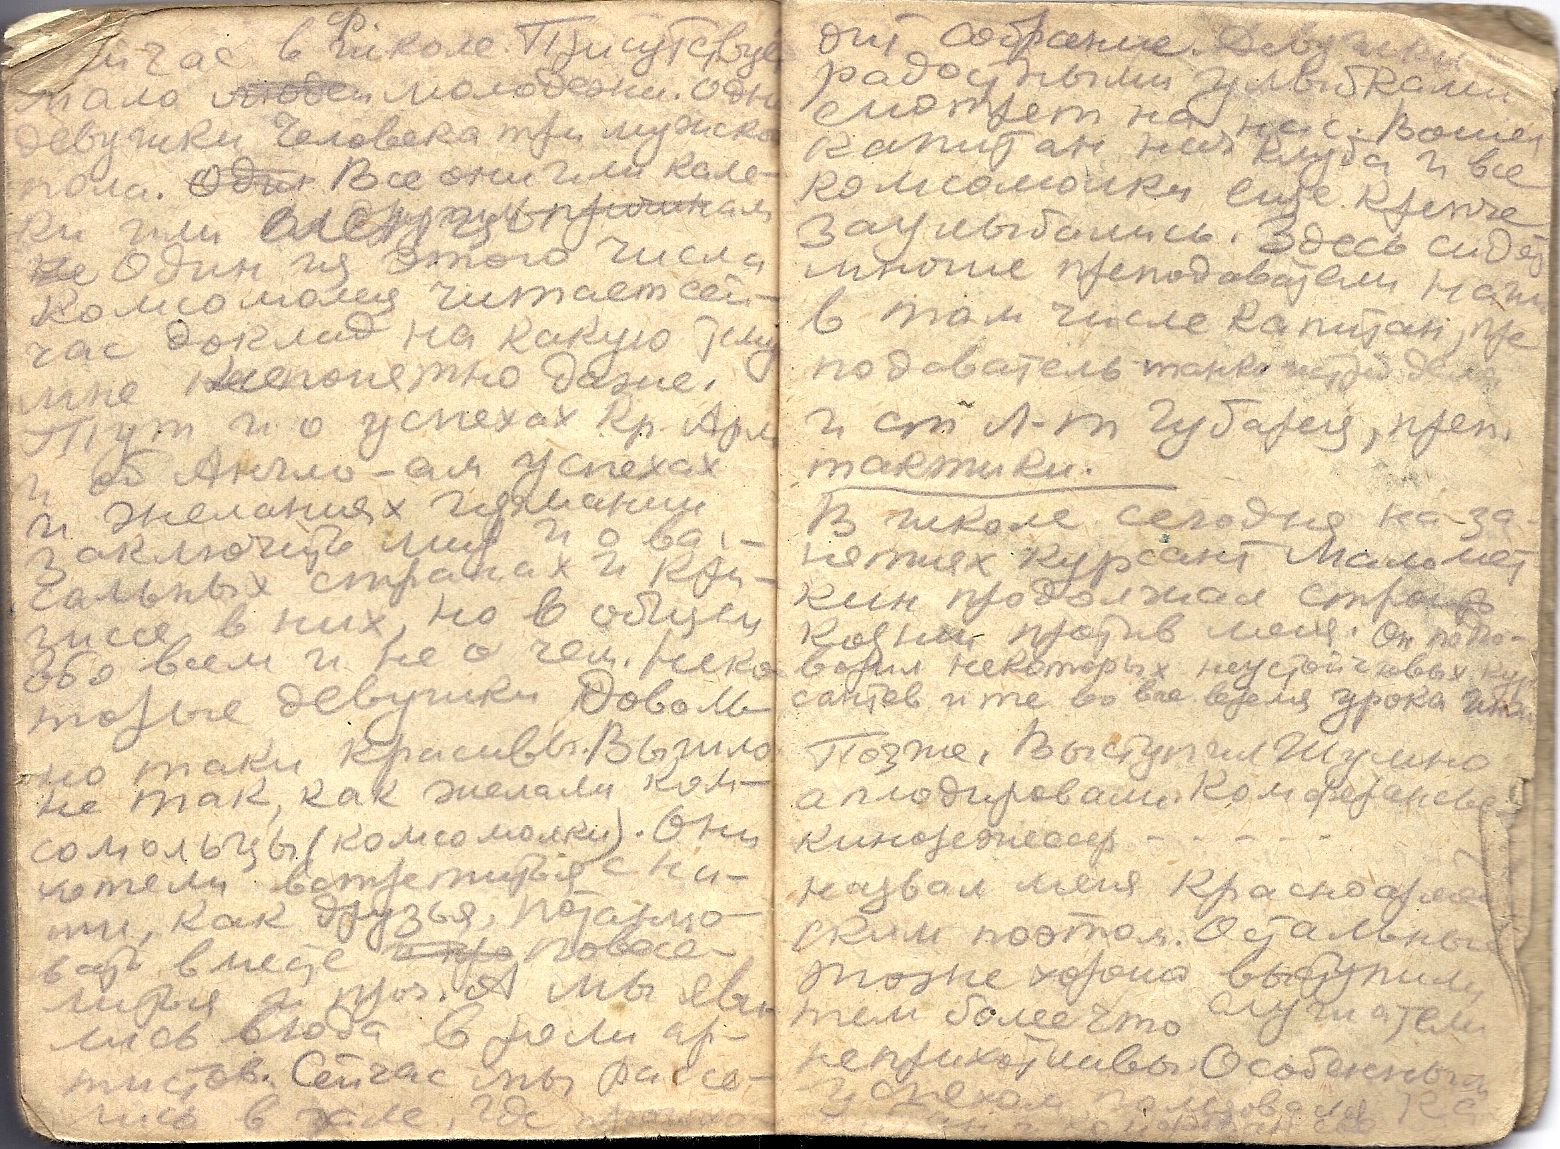 Ф.
йчас в школе. Присутствуе
мало людей молодежи. Одни
девушки, человека три мужско
пола. Один Все они или кале-
ки или
не Один из этого числа
комсомолец читает сей-
час доклад на какую тему
мне непонятно даже.
Тут и о успехах Кр. Арм
и об Англо-ам успехах
и желаниях германии
заключить мир и о ва.-
сальных странах и кри-
зисе в них, но в общем
обо всем и не о чем. Неко
торые девушки доволь-
но таки красивы. Вышло
не так, как желали ком-
сомольцы (комсомолки). Они
хотели встретиться с на-
ми, как друзья, потанцо-
вать вместе повесе-
литься и проч. А мы яви
лись сюда в роли ар-
тистов. Сейчас мы рассе-
лись в зале, где
дит собрание. Девушки
радостными улыбками
смотрят на нас. Вошел
капитан нач клуба и все
комсомолки еще крепче
заулыбались. Здесь сидят
многие преподаватели наши
в том числе капитан, пре
подаватель дела
и ст л-т Губарец, преп.
тактики.
В школе сегодня на за-
нятиях курсант Маломет
кин продолжал
козни против меня. Он подго-
ворил некоторых неустойчивых кур
сантов и те во все время урока
Позже. Выступил Шумно
аплодировали. Конферансье
кинорежиссер - - - - -
назвал меня Красноарме
ским поэтом. Остальные
тоже хорошо выступили,
тем более что слушатели
неприхотливы. Особенным
успехом пользовался
и конферансье